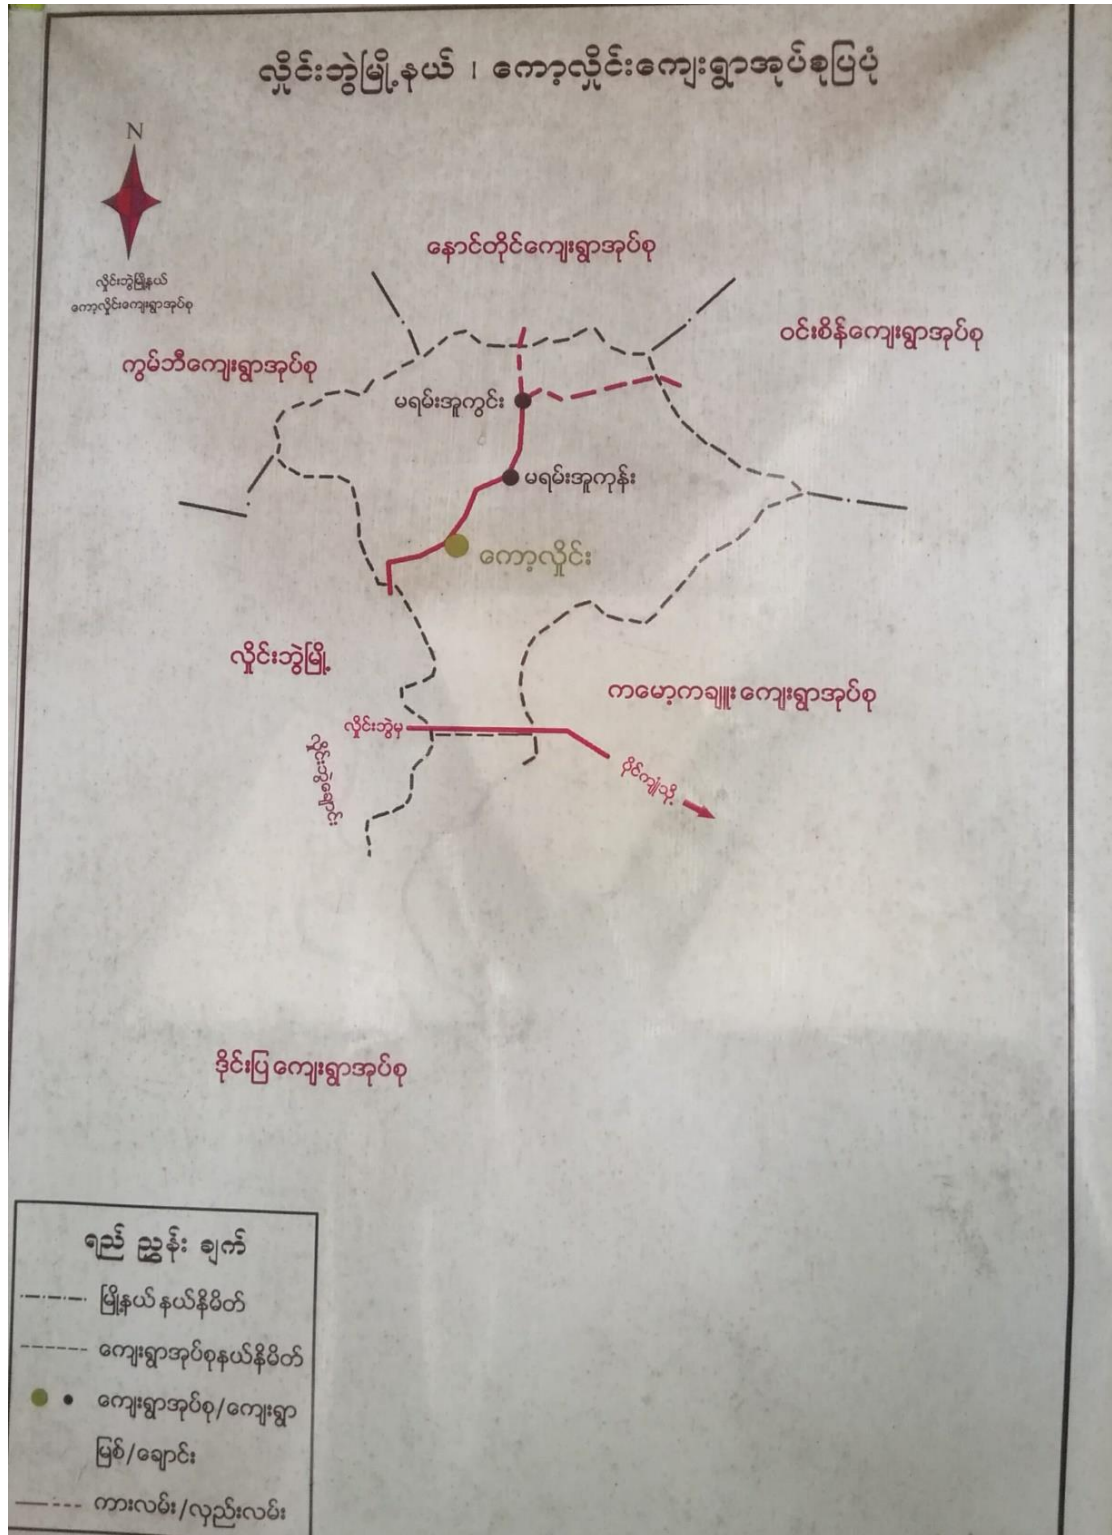 လှိုင်းဘွဲမြို့နယ် ၊ ကော့လှိုင်းကျေးရွာအုပ်စုပြပုံ
N
လှိုင်းဘွဲမြို့နယ်
ကော့လှိုင်းကျေးရွာအုပ်စု
နောင်တိုင်ကျေးရွာအုပ်စု
ဝင်းစိန်ကျေးရွာအုပ်စု
ကွမ်ဘီကျေးရွာအုပ်စု
မရမ်းအူကွင်း
မရမ်းအူကုန်း
ကော့လှိုင်း
လှိုင်းဘွဲမြို့
ကမော့ကချူးကျေးရွာအုပ်စု
လှိုင်းဘွဲမှ
လှိုင်းဘွဲချောင်း
ပိုင်ကျုံသို့
ဒိုင်းပြကျေးရွာအုပ်စု
ရည် ညွှန်း ချက်
မြို့နယ်နယ်နိမိတ်
ကျေးရွာအုပ်စုနယ်နိမိတ်
ကျေးရွာအုပ်စု/ကျေးရွာ
မြစ်/ချောင်း
ကားလမ်း/လှည်းလမ်း